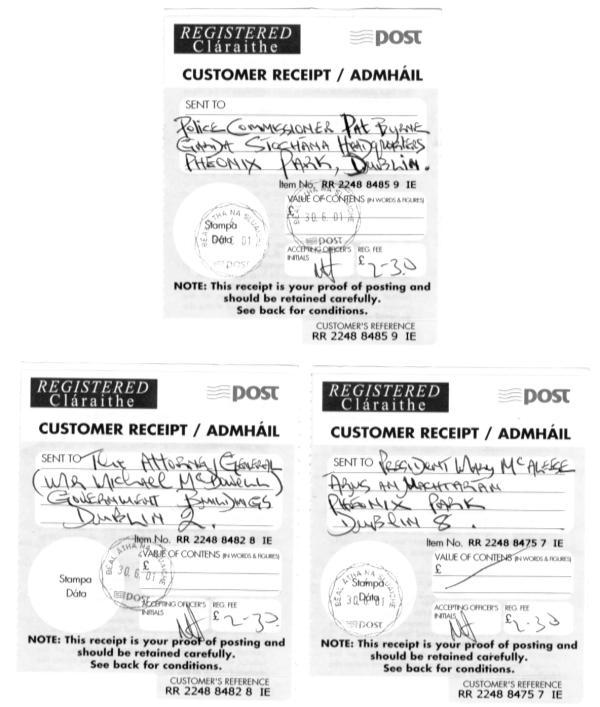 REGISTERED
Cláraithe
post
CUSTOMER RECEIPT / ADMHÁIL
SENT TO
Police Commissioner Pat Byrne
Garda Siochána Headquarters
Pheonix Park, Dublin.
Item No. RR 2248 8485 9 IE
VALUE OF CONTENS (IN WORDS & FIGURES)
£
BÉAL ÁTHA NA SLUAIGHE
30.6.01
POST
Stampa
Dáta
01
BÉAL ÁTHA NA SLUAIGHE
POST
ACCEPTING OFFICER'S INITIALS
REG. FEE
£2-30
NOTE: This receipt is your proof of posting and
should be retained carefully.
See back for conditions.
CUSTOMER'S REFERENCE
RR 2248 8485 9 IE
REGISTERED
Cláraithe
post
CUSTOMER RECEIPT / ADMHÁIL
SENT TO The Attorney General
(Mr Michael McDowell)
Government Buildings
Dublin 2.
Item No. RR 2248 8482 8 IE
VALUE OF CONTENS (IN WORDS & FIGURES)
£
BÉAL ÁTHA NA SLUAIGHE
30.6.01
POST
Stampa
Dáta
ACCEPTING OFFICER'S INITIALS
REG. FEE
£2-30
NOTE: This receipt is your proof of posting and
should be retained carefully.
See back for conditions.
CUSTOMER'S REFERENCE
RR 2248 8482 8 IE
REGISTERED
Cláraithe
post
CUSTOMER RECEIPT / ADMHÁIL
SENT TO President Mary McAleese
Arus an
Pheonix Park
Dublin 8.
Item No. RR 2248 8475 7 IE
VALUE OF CONTENS (IN WORDS & FIGURES)
£
BÉAL ÁTHA NA SLUAIGHE
Stampa
Dáta
30.6.01
POST
ACCEPTING OFFICER'S INITIALS
REG. FEE
£2-30
NOTE: This receipt is your proof of posting and
should be retained carefully.
See back for conditions.
CUSTOMER'S REFERENCE
RR 2248 8475 7 IE